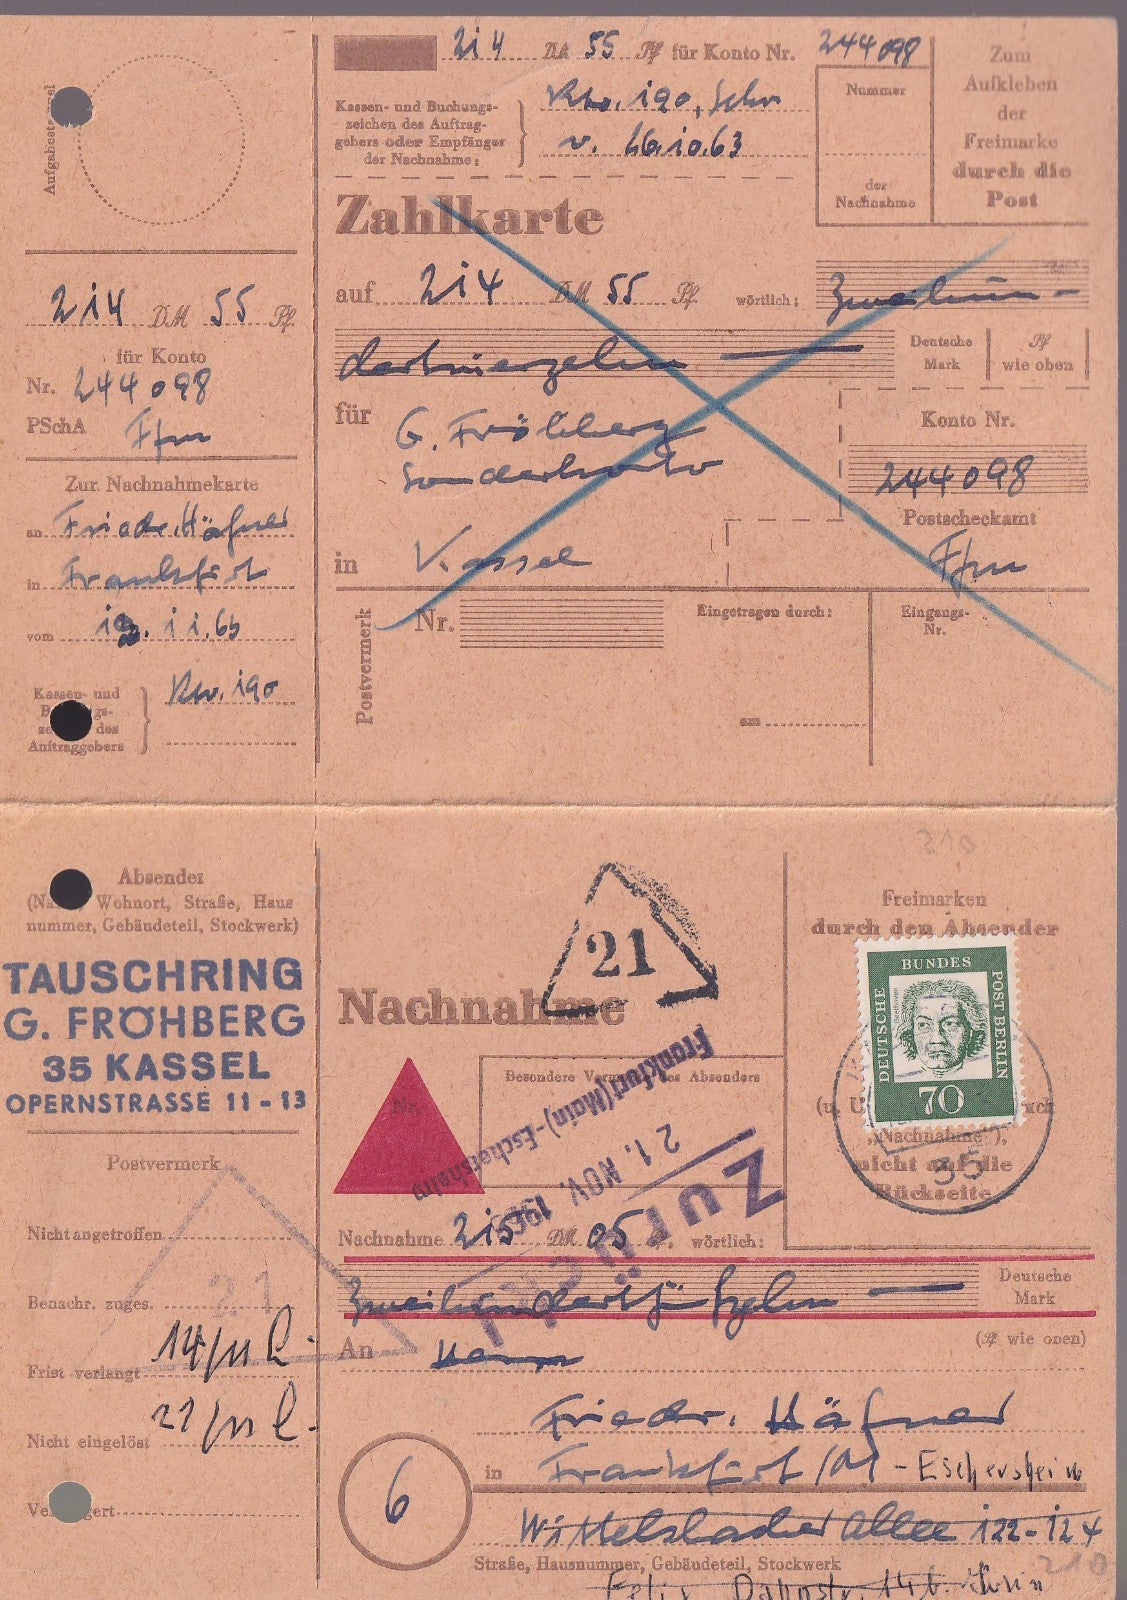 214 DM 55 Pf für Konto Nr. 244098
Kassen- und Buchungs-
zeichen des Auftrag-
gebers oder Empfänger
der Nachnahme:
190,
v. 26.10.63
Nummer
der
Nachnahme
Zum
Aufkleben
der
Freimarke
durch die
Post
Zahlkarte
auf 214 DM 55 Pf. wörtlich: Zweihun-
dertvierzehn
Deutsche
Mark
Pf
wie oben
für G. Fröhberg
Sonderkonto
in Kassel
Konto Nr.
244098
Postscheckamt
Ffm
Postvermerk
Nr.
Eingetragen durch:
am
Eingangs-
Nr.
214 DM 55 Pf.
für Konto
Nr. 244098
PSchA Ffm
Zur Nachnahmekarte
an Friedr. Häfner
in Frankfurt
vom 11.63
Kassen- und
des
Auftraggebers
190
Absender
Wohnort, Straße, Haus
nummer, Gebäudeteil, Stockwerk)
TAUSCHRING
G. FRÖHBERG
35 KASSEL
OPERNSTRASSE 11 - 13
Postvermerk
Nicht angetroffen
Benachr. zuges.
21
Frist verlangt 14/11
Nicht eingelöst 21/11
21
Nachnahme
Nr.
Besondere Vermerke des Absenders
Frankfurt(Main)-Eschersheim
21. NOV. 196
Zurück
Freimarken
durch den Absender
DEUTSCHE BUNDES POST BERLIN
70
„Nachnahme"),
nicht auf die
Rückseite
35
Nachnahme 215 DM 05 Pf, wörtlich:
Zweihundertfünfzehn
Deutsche
Mark
(Pf wie oben)
An Herrn
Friedr. Häfner
6
in Frankfurt/M - Eschersheim
Wittelsbacher Allee 122-124
Straße, Hausnummer, Gebäudeteil, Stockwerk
Felix Dahnstr. 14 b.
210
210